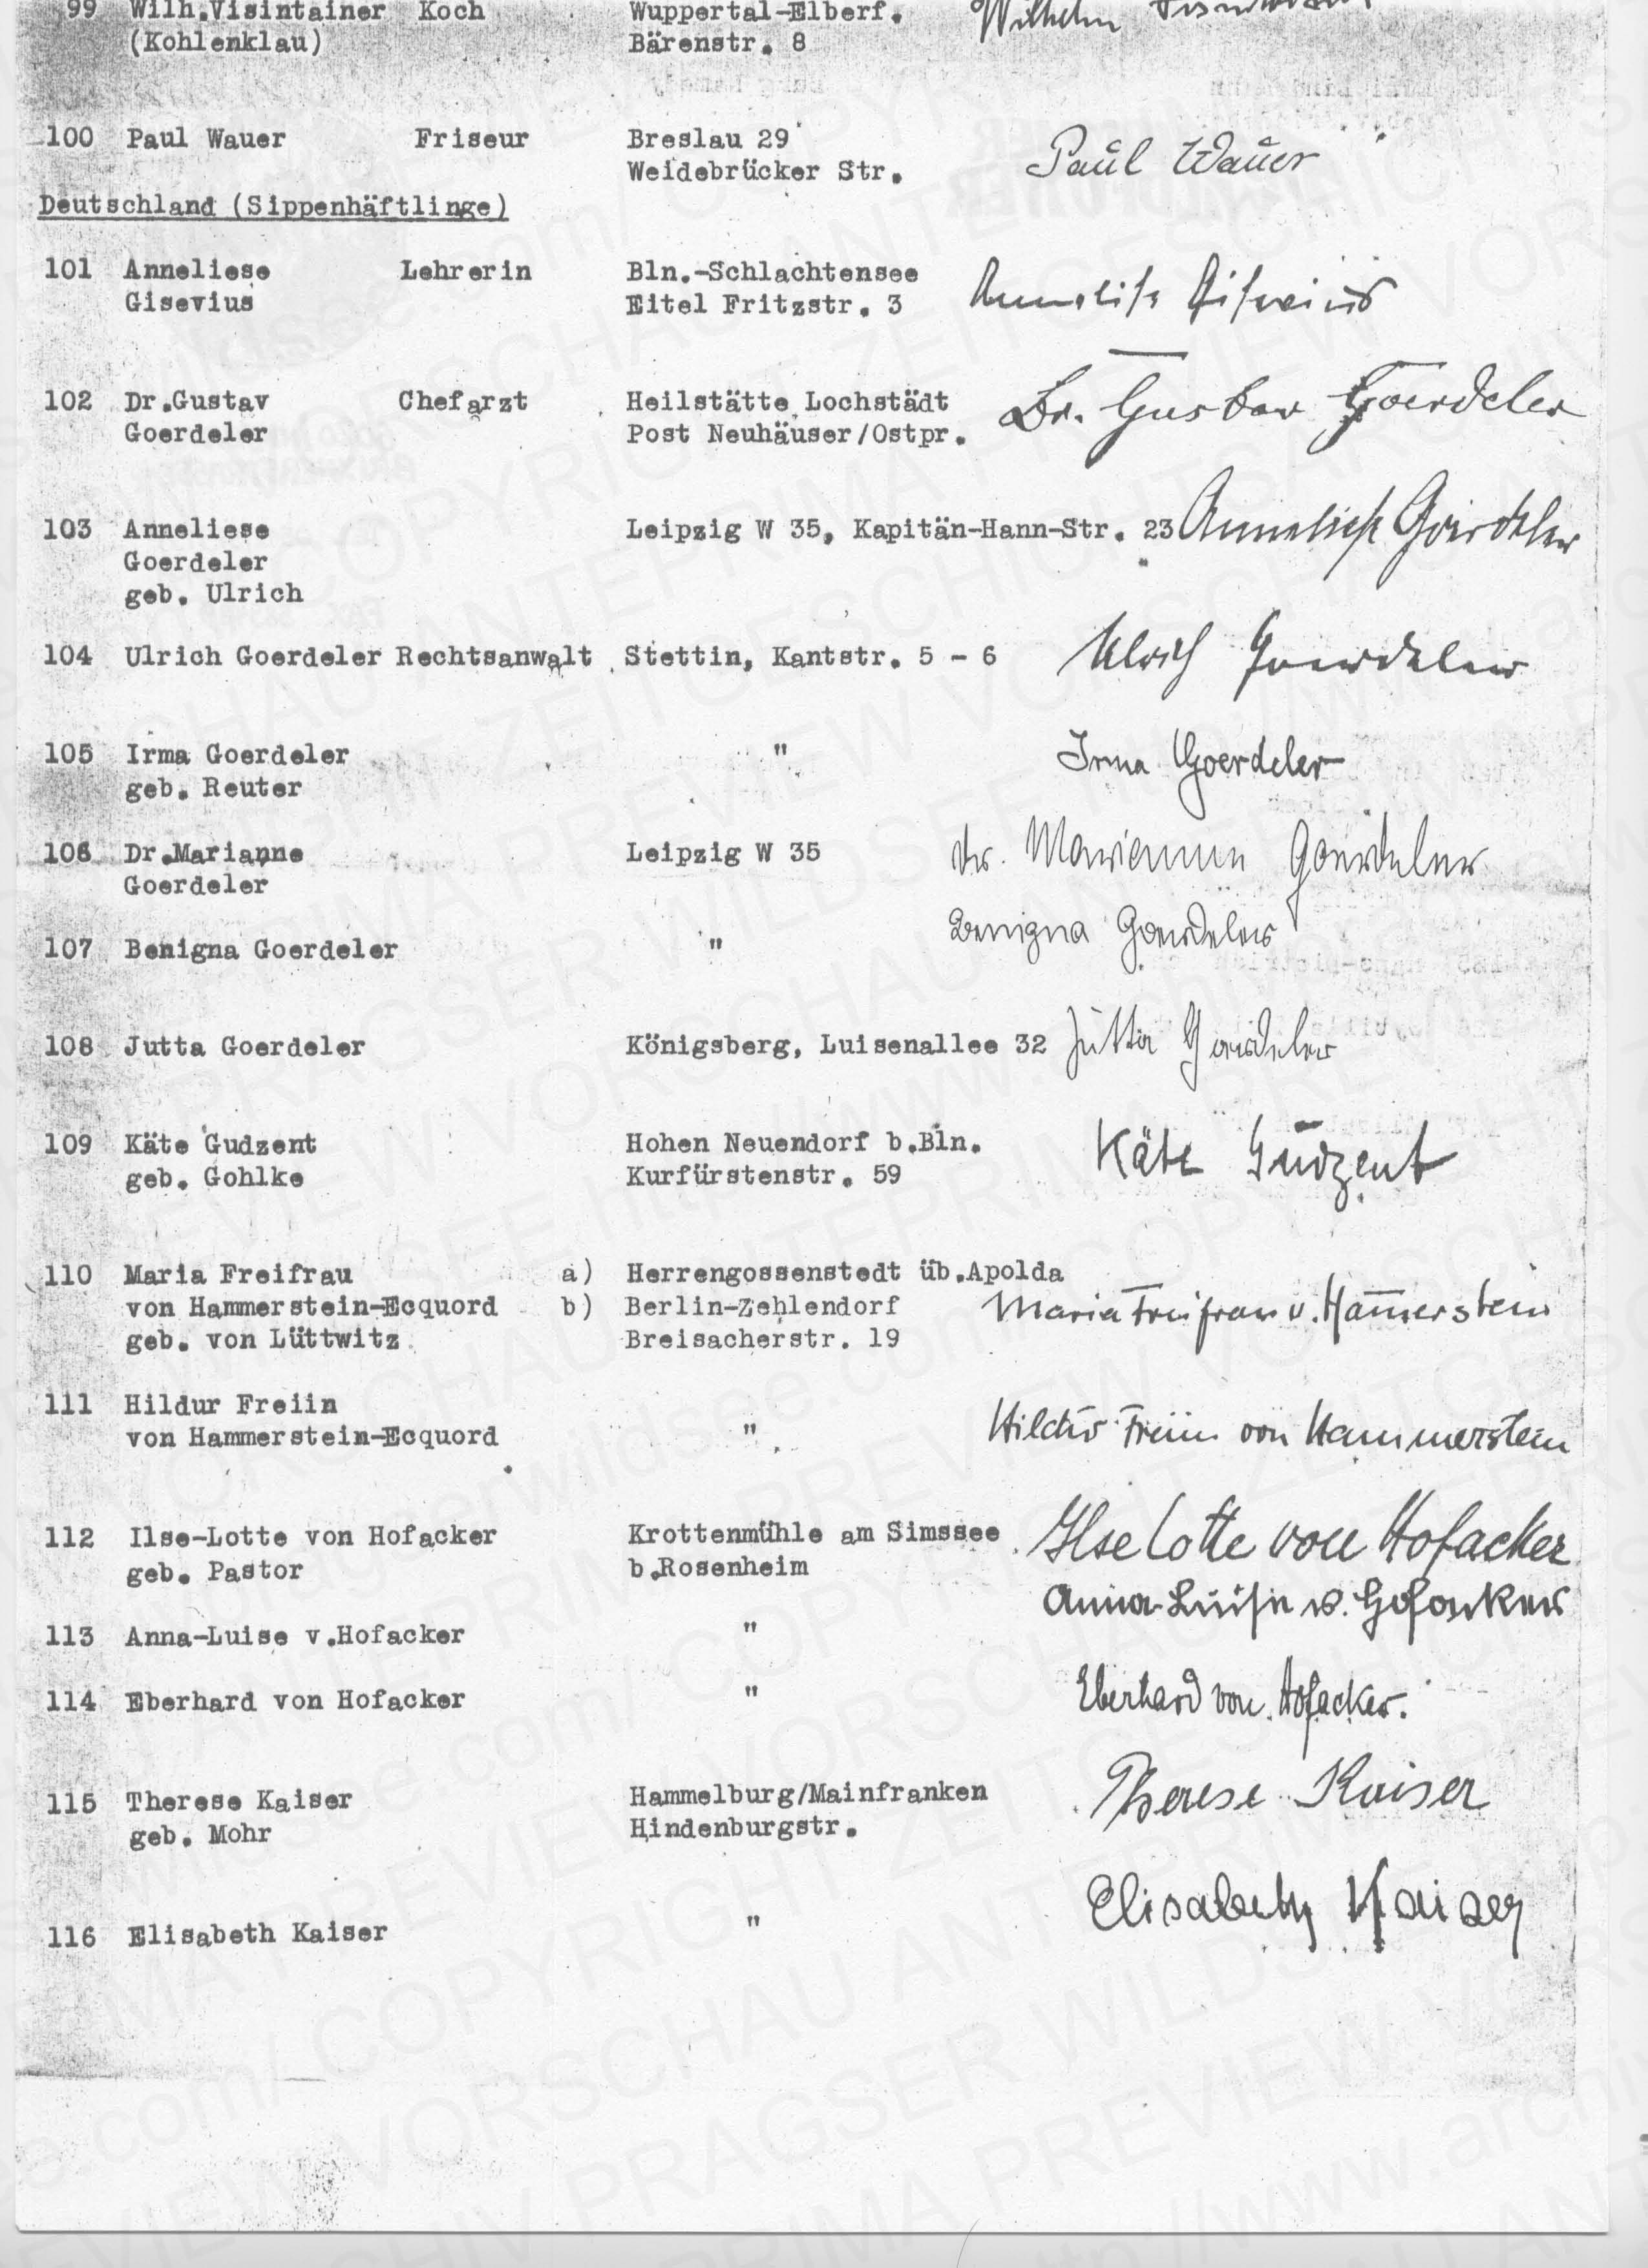 99 Wilh.Visintainer Koch Wuppertal-Elberf. Wilhelm
(Kohlenklau) Bärenstr. 8
100 Paul Wauer Friseur Breslau 29 Paul Wauer
Weidebrücker Str.
Deutschland (Sippenhäftlinge)
101 Anneliese Lehrerin Bln.-Schlachtensee Anneliese Gisevius
Gisevius Eitel Fritzstr. 3
102 Dr.Gustav Chefarzt Heilstätte Lochstädt Dr. Gustav Goerdeler
Goerdeler Post Neuhäuser/Ostpr.
103 Anneliese Leipzig W 35, Kapitän-Hann-Str. 23 Anneliese Goerdeler
Goerdeler
geb. Ulrich
104 Ulrich Goerdeler Rechtsanwalt Stettin, Kantstr. 5 - 6 Ulrich Goerdeler
105 Irma Goerdeler " Irma Goerdeler
geb. Reuter
106 Dr.Marianne Leipzig W 35 Dr. Marianne Goerdeler
Goerdeler
107 Benigna Goerdeler " Benigna Goerdeler
108 Jutta Goerdeler Königsberg, Luisenallee 32 Jutta Goerdeler
109 Käte Gudzent Hohen Neuendorf b.Bln. Käte Gudzent
geb. Gohlke Kurfürstenstr. 59
110 Maria Freifrau a) Herrengossenstedt üb.Apolda
von Hammerstein-Ecquord b) Berlin-Zehlendorf Maria Freifrau v. Hammerstein
geb. von Lüttwitz Breisacherstr. 19
111 Hildur Freiin
von Hammerstein-Ecquord " Hildur Freiin von Hammerstein
112 Ilse-Lotte von Hofacker Krottenmühle am Simssee Ilse Lotte von Hofacker
geb. Pastor b.Rosenheim
113 Anna-Luise v.Hofacker " Anna-Luise v. Hofacker
114 Eberhard von Hofacker " Eberhard von Hofacker.
115 Therese Kaiser Hammelburg/Mainfranken Therese Kaiser
geb. Mohr Hindenburgstr.
116 Elisabeth Kaiser " Elisabeth Kaiser